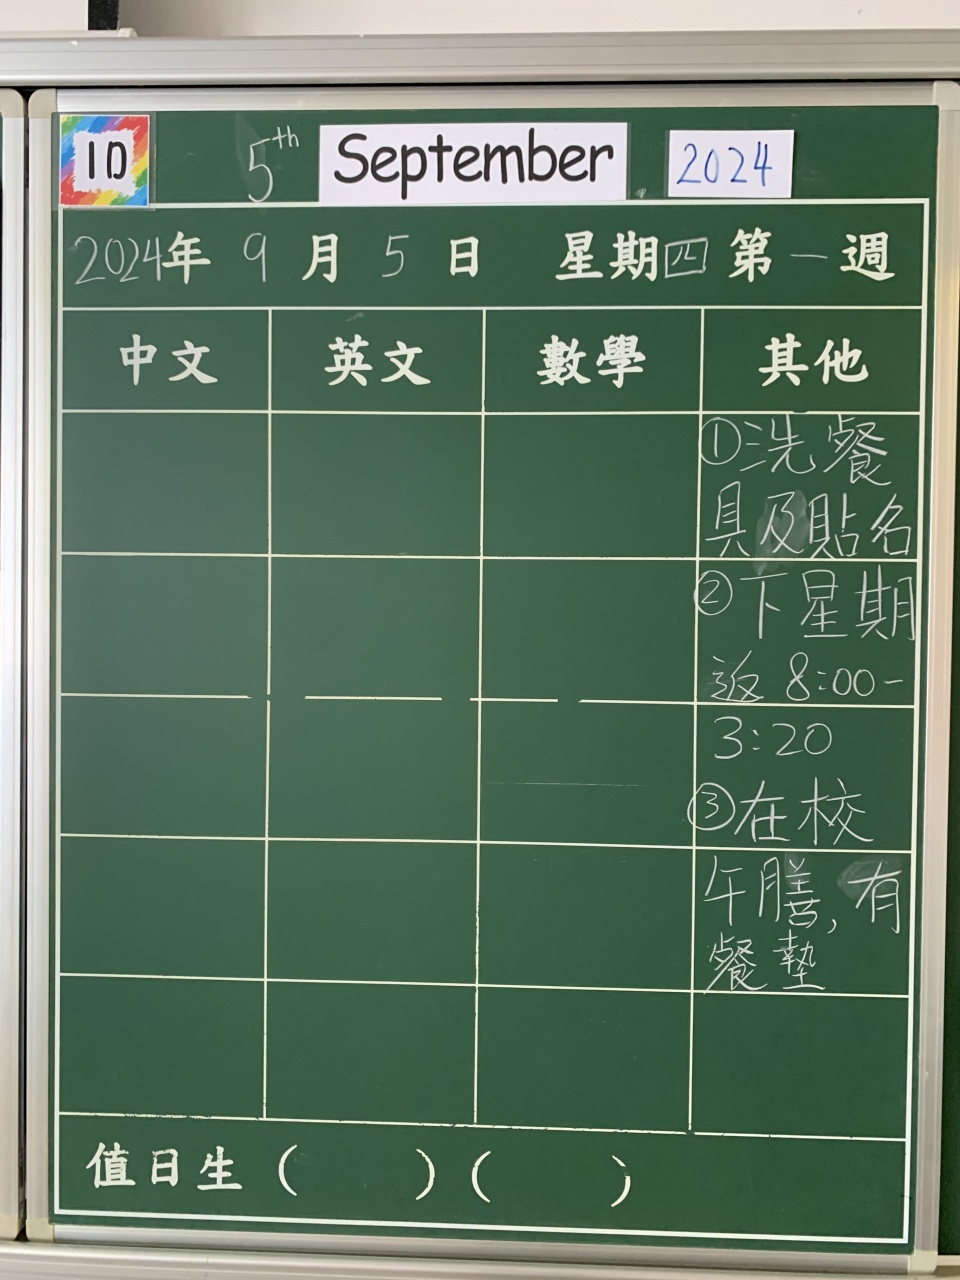 1D 5th September 2024
2024年 9 月 5 日 星期四 第一週
中文 英文 數學 其他
①洗餐
具及貼名
②下星期
返 8:00-
3:20
③在校
午膳,有
餐墊
值日生 ( ) ( )